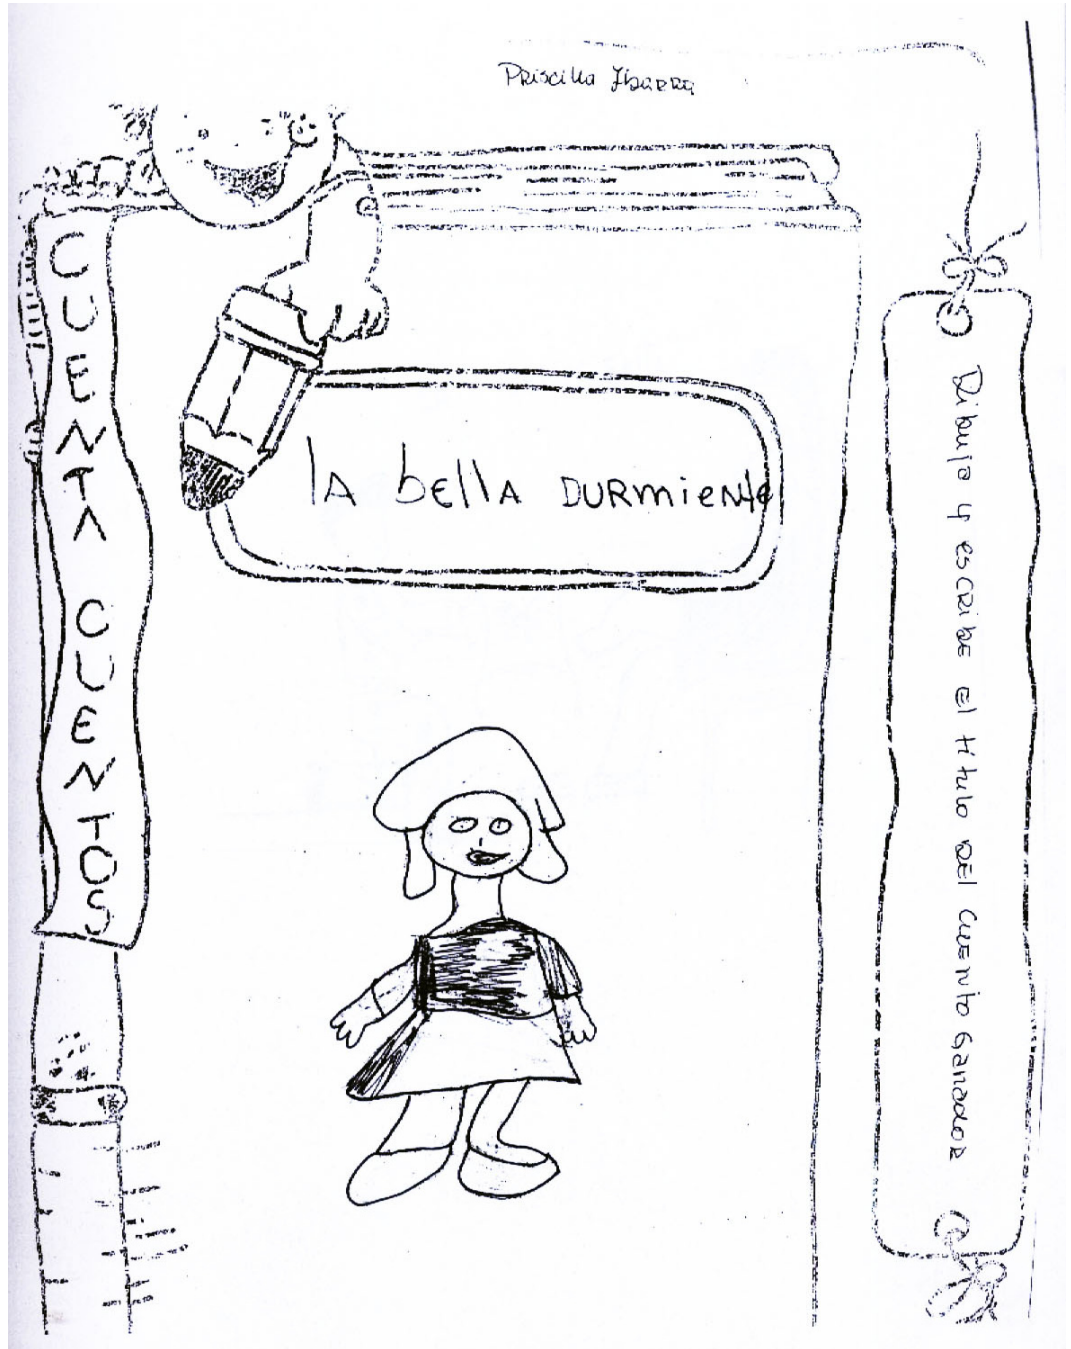 Priscilla Ibarra
CUENTA CUENTOS
lA bEllA DURmieNte
Dibuja y esCRibE El título DEl CUENto GanadoR